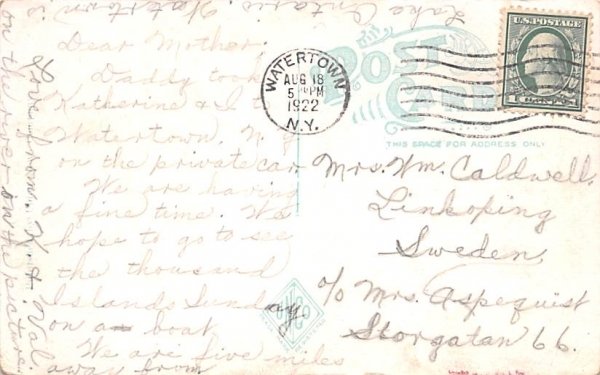 Dear Mother:
Daddy took
Katherine & I to
Watertown, N.Y.
on the private car
We are having
a fine time. We
hope to go to see
the thousand
Islands Sunday
on a boat
We are five miles
away from
Lake Ontario Watertown is
on the river on the picture.
Love from K. & Val.
POST CARD
THIS SPACE FOR ADDRESS ONLY
WATERTOWN
AUG 18
5 PM
1922
N.Y.
U.S. POSTAGE
Mrs. Wm. Caldwell.
Linkoping
Sweden,
c/o Mrs. Aspequist
Storgatan 66.